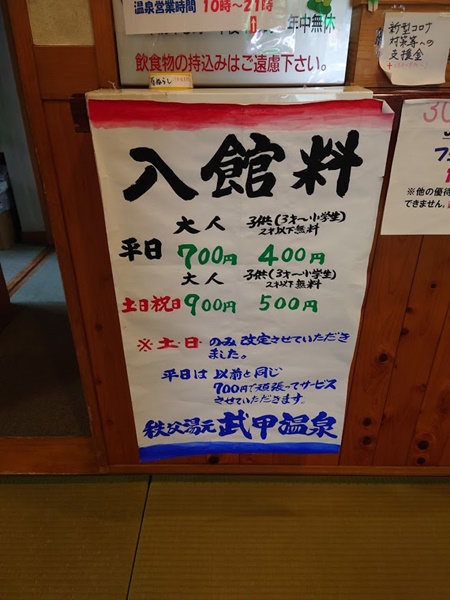 温泉営業時間 10時～21時
年中無休
飲食物の持込みはご遠慮下さい。
新型コロナ
対策等への
支援金
入館料
大人 子供(3才～小学生)
2才以下無料
平日 700円 400円
大人 子供(3才～小学生)
2才以下無料
土日祝日 900円 500円
※土・日・のみ改定させていただき
ました。
平日は以前と同じ
700円で頑張ってサービス
させていただきます。
秩父湯元 武甲温泉
※他の優待
できません。